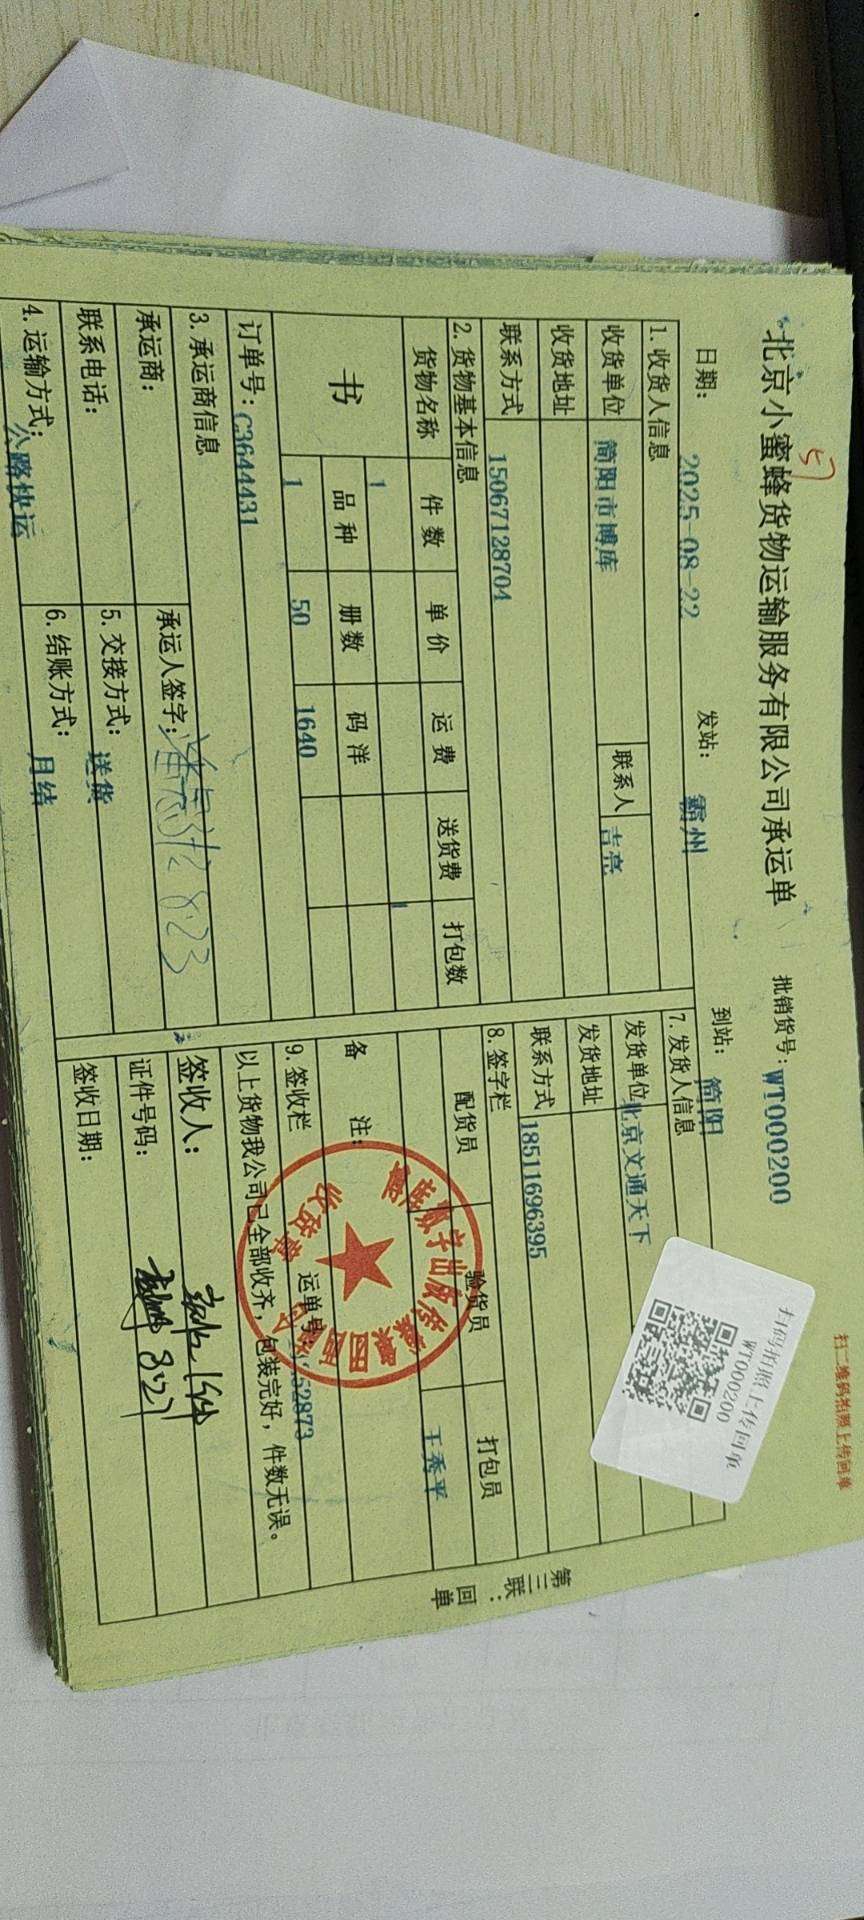 扫二维码拍照上传回单
57
北京小蜜蜂货物运输服务有限公司承运单 批销货号:WT000200
日期: 2025-08-22 发站: 霸州 到站: 简阳
扫码拍照上传回单
WT000200
1. 收货人信息
收货单位 简阳市博库 联系人 吉亮
收货地址
联系方式 15067128704
2. 货物基本信息
货物名称 件数 单价 运费 送货费 打包数
书 1 1
品种 册数 码洋
1 50 1640
订单号: C3644431
3. 承运商信息
承运商: 承运人签字: 8.23
联系电话: 5. 交接方式: 送货
4. 运输方式: 公路快运 6. 结账方式: 月结
7. 发货人信息
发货单位 北京文通天下
发货地址
联系方式 18511696395
8. 签字栏
配货员 验货员 打包员
王秀平
备 注:
运单号: 52873
9. 签收栏
以上货物我公司已全部收齐, 包装完好, 件数无误。
签收人:
证件号码: 8.27
签收日期:
第三联: 回单
收货章